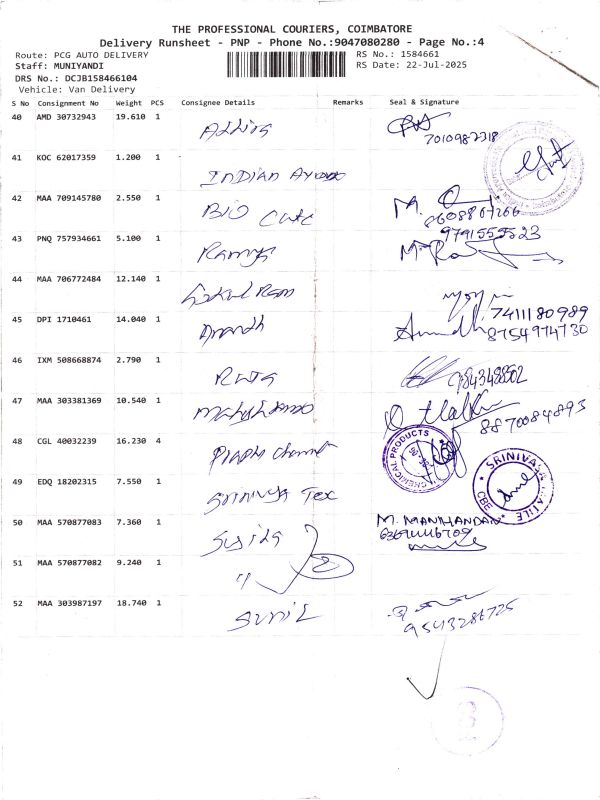 THE PROFESSIONAL COURIERS, COIMBATORE
Delivery Runsheet - PNP - Phone No.:9047080280 - Page No.:4
Route: PCG AUTO DELIVERY RS No.: 1584661
Staff: MUNIYANDI RS Date: 22-Jul-2025
DRS No.: DCJB158466104
Vehicle: Van Delivery
S No Consignment No Weight PCS Consignee Details Remarks Seal & Signature
40 AMD 30732943 19.610 1
7010982318
41 KOC 62017359 1.200 1 INDIAN
42 MAA 709145780 2.550 1 BIO M.
8608867266
9791555523
43 PNQ 757934661 5.100 1 Ramya
44 MAA 706772484 12.140 1 Gokul Ram
7411180989
45 DPI 1710461 14.040 1 Anandh 8754974730
46 IXM 508668874 2.790 1 Raja
47 MAA 303381369 10.540 1
8870084893
48 CGL 40032239 16.230 4 CHEMICAL PRODUCTS
49 EDQ 18202315 7.550 1 Tex SRINIVASA CBE
50 MAA 570877083 7.360 1 M. MANIKANDAN
51 MAA 570877082 9.240 1 "
52 MAA 303987197 18.740 1 SUNIL
9543286725